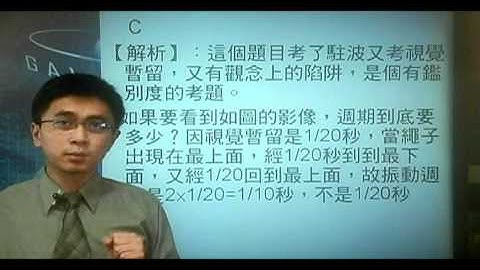 C
【解析】：這個題目考了駐波又考視覺
暫留，又有觀念上的陷阱，是個有鑑
別度的考題。
如果要看到如圖的影像，週期到底要
多少？因視覺暫留是1/20秒，當繩子
出現在最上面，經1/20秒到到最下
面，又經1/20回到最上面，故振動週
是2×1/20=1/10秒，不是1/20秒
GA